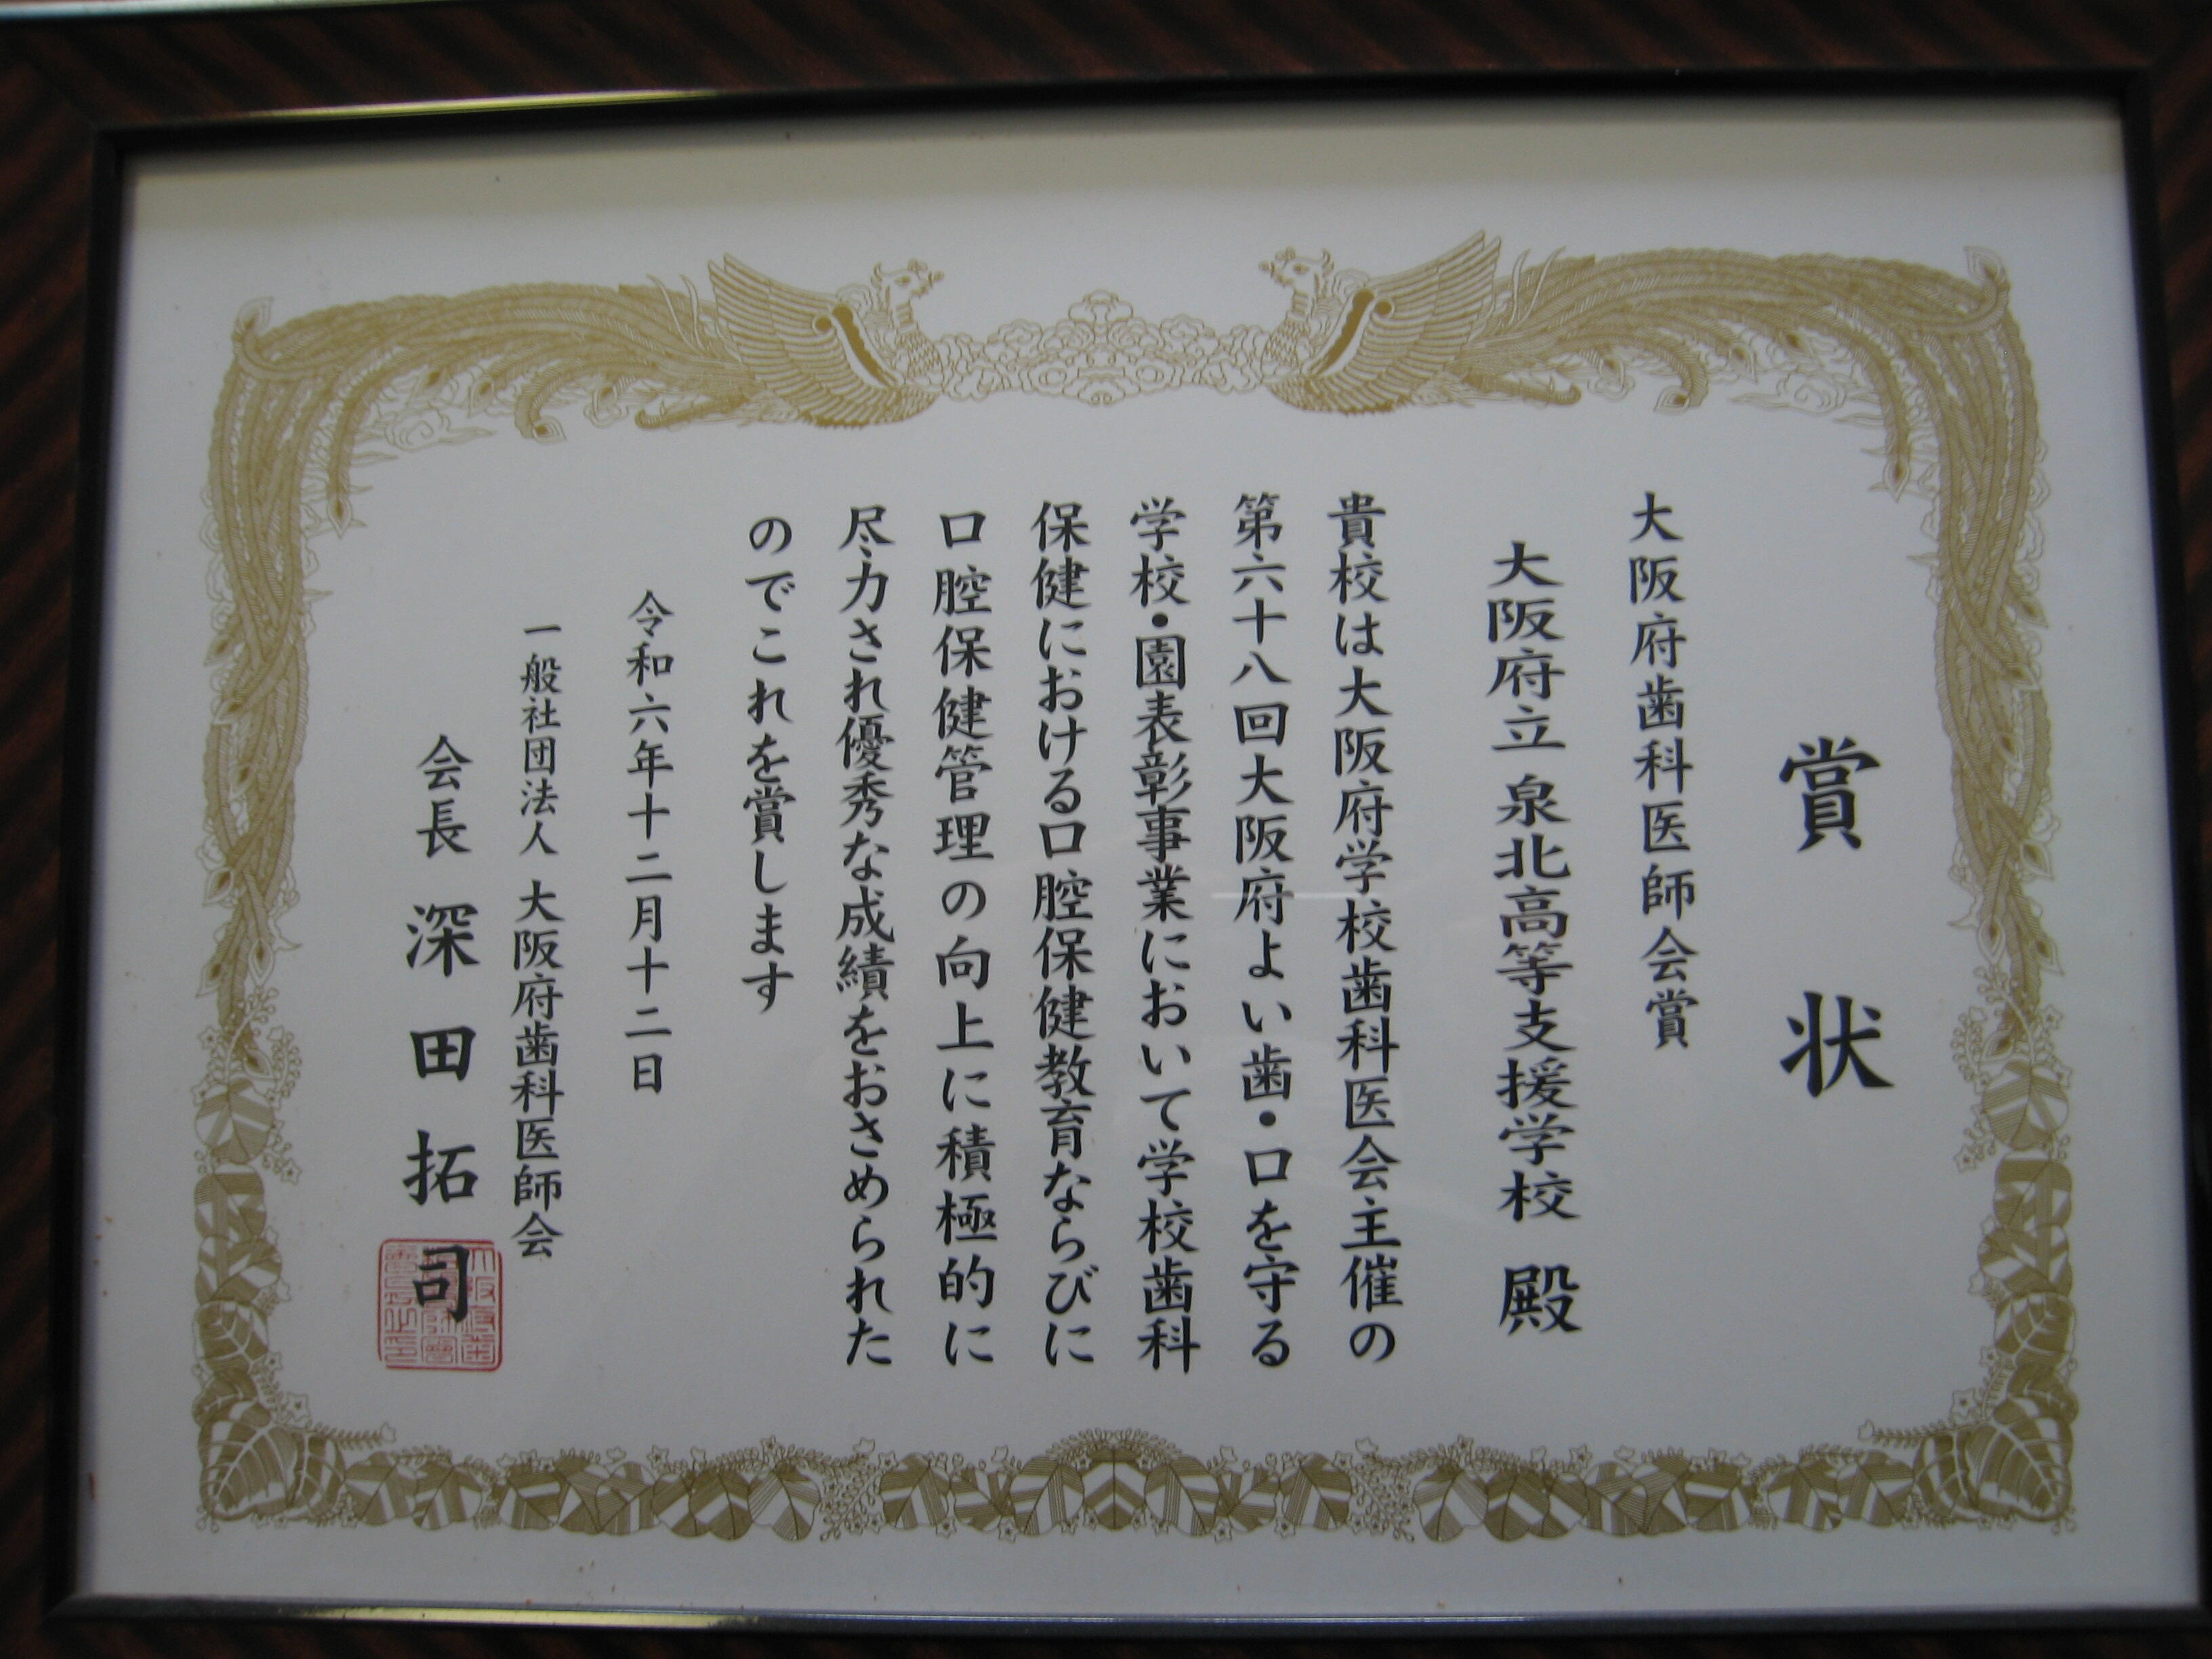 賞状
大阪府歯科医師会賞
大阪府立 泉北高等支援学校 殿
貴校は大阪府学校歯科医会主催の
第六十八回大阪府よい歯・口を守る
学校・園表彰事業において学校歯科
保健における口腔保健教育ならびに
口腔保健管理の向上に積極的に
尽力され優秀な成績をおさめられた
のでこれを賞します
令和六年十二月十二日
一般社団法人 大阪府歯科医師会
会長 深田拓司